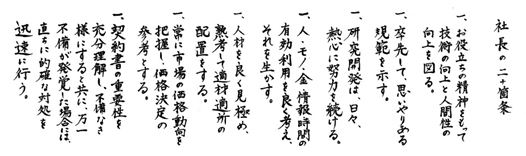 社長の二十箇条
一、お役立ちの精神をもって
技術の向上と人間性の
向上を図る。
一、卒先して、思いやりある
規範を示す。
一、研究開発は、日々、
熱心に努力を続ける。
一、人・モノ・金・情報・時間の
有効利用を良く考え、
それを生かす。
一、人材を良く見極め、
熟考して適材適所の
配置をする。
一、常に市場の価格動向を
把握し、価格決定の
参考とする。
一、契約書の重要性を
充分理解し、不備なき
様にすると共に、万一
不備が発覚した場合は、
直ちに的確な対処を
迅速に行う。